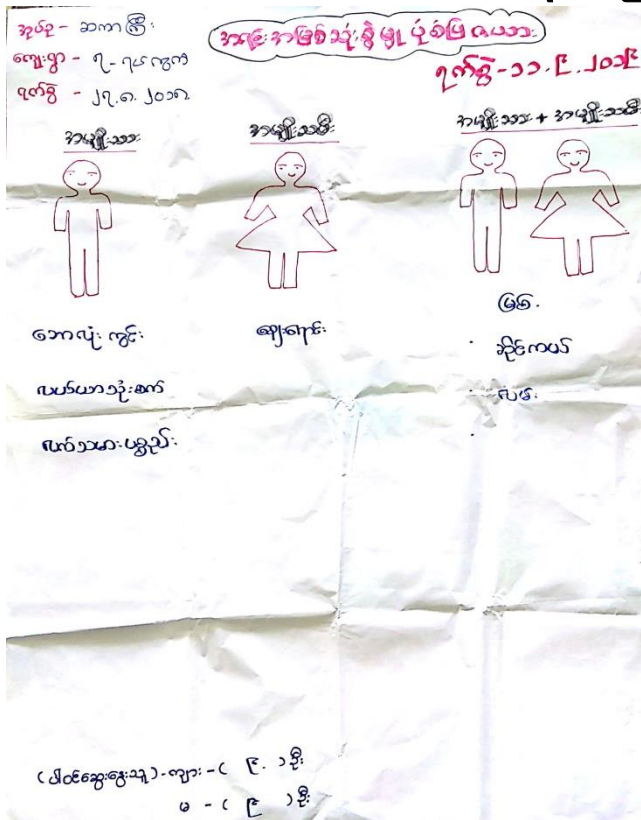 အုပ်စု - ဆကာကြီး
ကျေးရွာ - ၇ - ရပ်ကွက်
ရက်စွဲ - ၂၇.၈.၂၀၁၈
အရင်းအမြစ်သုံးစွဲမှု ပုံစံပြ ဇယား
ရက်စွဲ - ၁၁.၉.၂၀၁၉
အမျိုးသား
အမျိုးသမီး
အမျိုးသား + အမျိုးသမီး
ဘောလုံးကွင်း
လယ်ယာသုံးစက်
လက်သမားပစ္စည်း
ဈေးရောင်း
မြစ်
ဆိုင်ကယ်
လမ်း
(ပါဝင်ဆွေးနွေးသူ) - ကျား - ( ၉ ) ဦး
မ - ( ၉ ) ဦး